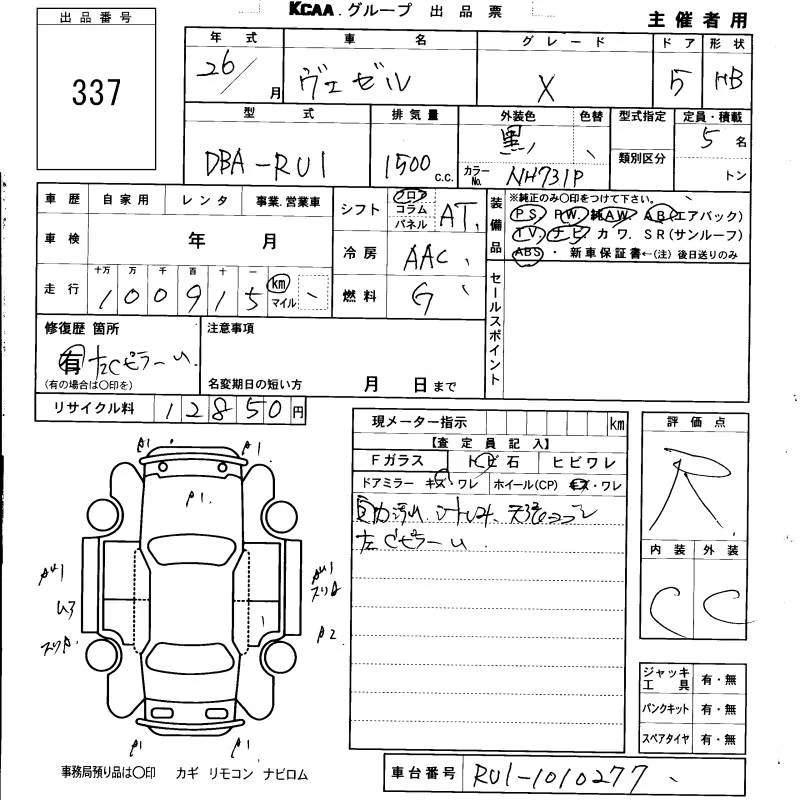 KCAA. グループ 出品票
主催者用
出品番号
337
年式 車名 グレード ドア 形状
26/ 月 ヴェゼル X 5 HB
型式 排気量 外装色 色替 型式指定 定員・積載
DBA-RU1 1500 c.c. 黒 類別区分 5 名
カラーNo. NH731P トン
車歴 自家用 レンタ 事業.営業車
車検 年 月
走行 十万 万 千 百 十 一
100915 km マイル
シフト フロア コラム パネル AT
冷房 AAC
燃料 G
装備品
※純正のみ〇印をつけて下さい。
PS. PW. 純AW. AB(エアバック)
TV. ナビ. カワ. SR(サンルーフ)
ABS・ 新車保証書←(注)後日送りのみ
セールスポイント
修復歴 箇所
有 左CピラーU
(有の場合は〇印を)
注意事項
名変期日の短い方 月 日まで
リサイクル料 12850円
現メーター指示 km
【査定員記入】
Fガラス トビ石 ヒビワレ
ドアミラー キズ・ワレ ホイール(CP) キズ・ワレ
左Cピラーu
評価点
R
内装 外装
C C
ジャッキ工具 有・無
パンクキット 有・無
スペアタイヤ 有・無
A1 A1
A1.
U3
A2
A1 A1
事務局預り品は〇印 カギ リモコン ナビロム
車台番号 RU1-1010277